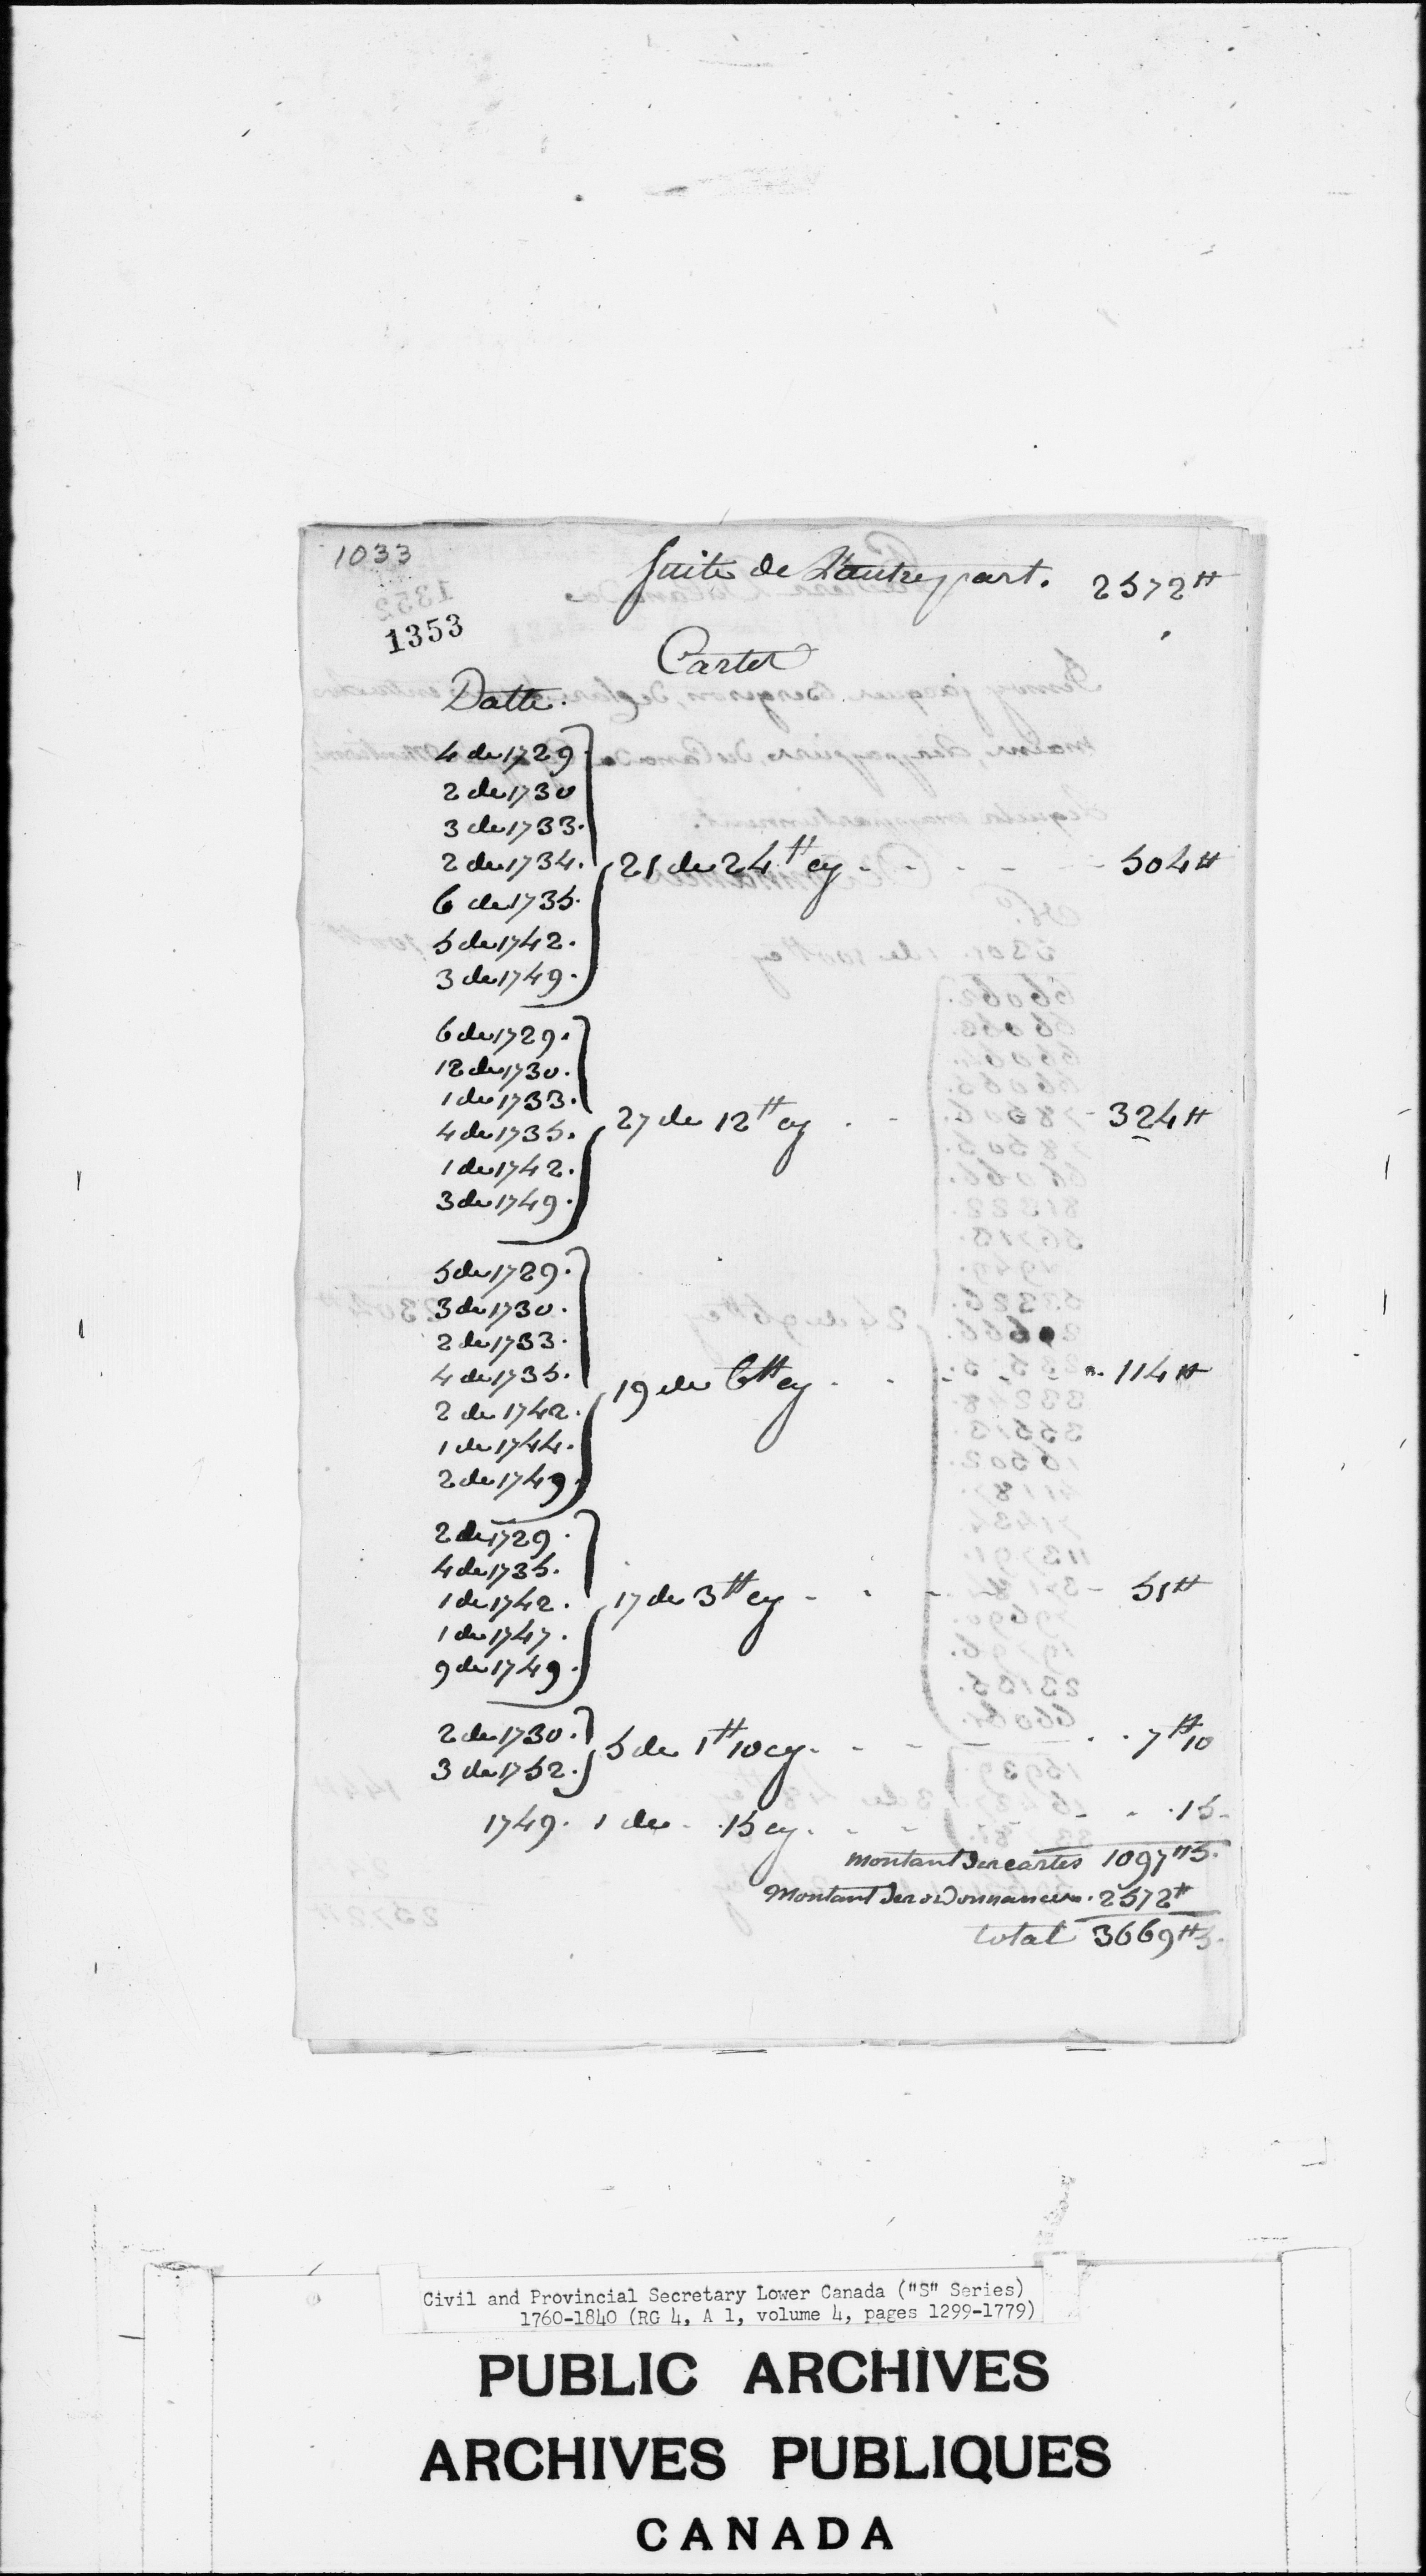 1033
Suite de L'autre part. 2572 ₶
1352
1353
Cartes
Datte.
4 de 1729
2 de 1730
3 de 1733.
2 de 1734. 21 de 24 ₶ cy - - - - 504 ₶
6 de 1735.
5 de 1742.
3 de 1749.
6 de 1729.
12 de 1730.
1 de 1733.
4 de 1735. 27 de 12 ₶ cy . - - 324 ₶
1 de 1742.
3 de 1749.
5 de 1729.
3 de 1730.
2 de 1733.
4 de 1735. 19 de 6 ₶ cy - - - - 114 ₶
2 de 1742.
1 de 1744.
2 de 1749.
2 de 1729.
4 de 1735.
1 de 1742. 17 de 3 ₶ cy - - - - 51 ₶
1 de 1747.
9 de 1749.
2 de 1730. 5 de 1 ₶ 10 cy. - - - . . 7 ₶ 10
3 de 1752.
1749. 1 de . 15 cy. - - - - . 15.
Montant Des cartes 1097 ₶ 5.
Montant Des ordonnances. 2572 ₶
total 3669 ₶ 5.
Civil and Provincial Secretary Lower Canada ("S" Series)
1760-1840 (RG 4, A 1, volume 4, pages 1299-1779)
PUBLIC ARCHIVES
ARCHIVES PUBLIQUES
CANADA